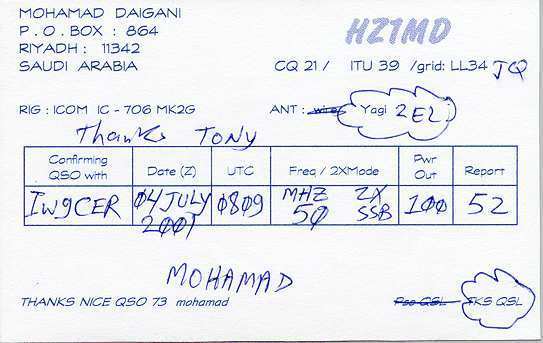 MOHAMAD DAIGANI
HZ1MD
P.O.BOX : 864
RIYADH : 11342
SAUDI ARABIA
CQ 21 / ITU 39 /grid: LL34 JQ
RIG : ICOM IC - 706 MK2G
ANT : wire Yagi 2 EL
Thanks TONY
Confirming QSO with Date (Z) UTC Freq / 2XMode Pwr Out Report
IW9CER 04 JULY 2001 0809 MHZ 50 2X SSB 100 52
MOHAMAD
THANKS NICE QSO 73 mohamad
Pse QSL TKS QSL